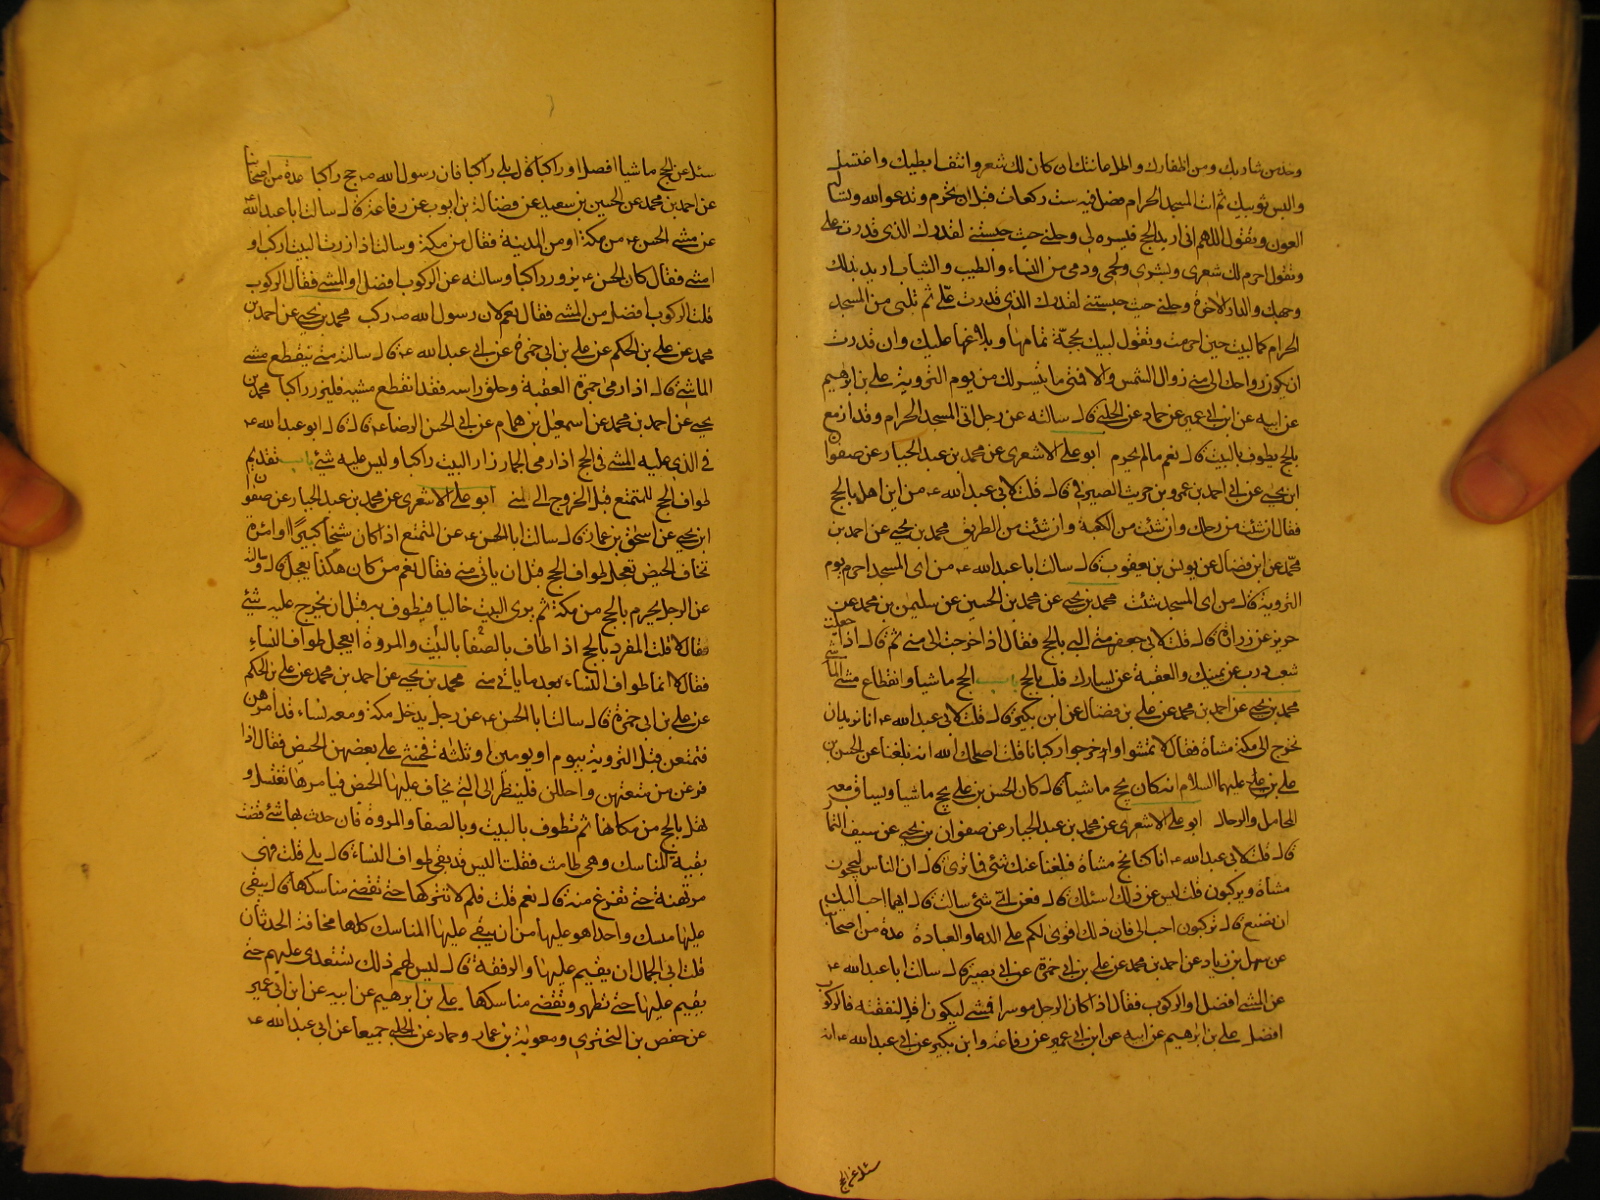 وخذ من شاربك ومن اظفارك واطل عانتك ان كان لك شعر وانتف ابطيك واغتسل
والبس ثوبيك ثم ائت المسجد الحرام فصل فيه ست ركعات قبل ان تحرم وتدعو الله وتساله
العون وتقول اللهم اني اريد الحج فيسره لي وحلني حيث حبستني لقدرك الذي قدرت علي
وتقول احرم لك شعري وبشري ولحمي ودمي من النساء والطيب والثياب اريد بذلك
وجهك والدار الاخرة وحلني حيث حبستني لقدرك الذي قدرت علي ثم تلبي من المسجد
الحرام كما لبيت حين احرمت وتقول لبيك بحجة تمامها وبلاغها عليك وان قدرت
ان يكون رواحك الى منى زوال الشمس والا فمتى ما تيسر لك من يوم التروية علي بن ابرهيم
عن ابيه عن ابن ابي عمير عن حماد عن الحلبي قال سالته عن رجل اتى المسجد الحرام وقد ازمع
بالحج يطوف بالبيت قال نعم ما لم يحرم ابو علي الاشعري عن محمد بن عبد الجبار عن صفوان
ابن يحيى عن ابي احمد بن عمرو بن حريث الصيرفي قال قلت لابي عبد الله ع من اين اهل بالحج
فقال ان شئت من رحلك وان شئت من الكعبة وان شئت من الطريق محمد بن يحيى عن احمد بن
محمد عن ابن فضال عن يونس بن يعقوب قال سالت ابا عبد الله ع من اي المسجد احرم يوم
التروية قال من اي المسجد شئت محمد بن يحيى عن محمد بن الحسين عن سليمن بن محمد عن
حريز عن زرارة قال قلت لابي جعفر متى البي بالحج فقال اذا خرجت الى منى ثم قال اذا جعلت
شعب درب عن يمينك والعقبة عن يسارك فلب بالحج باب الحج ماشيا وانقطاع مشي الماشي
محمد بن يحيى عن احمد بن محمد عن علي بن فضال عن ابن بكير قال قلت لابي عبد الله ع انا نريد ان
نخرج الى مكة مشاة فقال لا تمشوا واخرجوا ركبانا قلت اصلحك الله انه بلغنا عن الحسن بن
علي بن علي عليهما السلام انه كان يحج ماشيا قال كان الحسن بن علي يحج ماشيا ويساق معه
المحامل والرحال ابو علي الاشعري عن محمد بن عبد الجبار عن صفوان بن يحيى عن سيف التمار
قال قلت لابي عبد الله ع انا كنا نحج مشاة فبلغنا عنك شئ فما ترى قال ان الناس ليحجون
مشاة ويركبون قلت ليس عن ذلك اسئلك قال فعن اي شئ سالت قال ايهما احب اليك
ان نصنع قال تركبون احب الي فان ذلك اقوى لكم على الدعاء والعبادة عدة من اصحابنا
عن سهل بن زياد عن احمد بن محمد عن علي بن ابي حمزة عن ابي بصير قال سالت ابا عبد الله ع
عن المشي افضل او الركوب فقال اذا كان الرجل موسرا فمشى ليكون اقل لنفقته فالركوب
افضل علي بن ابرهيم عن ابيه عن ابن ابي عمير عن رفاعة وابن بكير عن ابي عبد الله ع انه
سئل عن الحج
سئل عن الحج ماشيا افضل او راكبا قال بل راكبا فان رسول الله ص حج راكبا عدة من اصحابنا
عن احمد بن محمد عن الحسين بن سعيد عن فضالة بن ايوب عن رفاعة قال سالت ابا عبد الله ع
عن مشي الحسن ع من مكة او من المدينة فقال من مكة وسالت اذا زرت البيت اركب او
امشي فقال كان الحسن ع يزور راكبا وسالته عن الركوب افضل او المشي فقال الركوب
قلت الركوب افضل من المشي فقال نعم لان رسول الله ص ركب محمد بن يحيى عن احمد بن
محمد عن علي بن الحكم عن علي بن ابي حمزة عن ابي عبد الله ع قال سالته متى ينقطع مشي
الماشي قال اذا رمى جمرة العقبة وحلق راسه فقد انقطع مشيه فليزر راكبا محمد بن
يحيى عن احمد بن محمد عن اسمعيل بن همام عن ابي الحسن الرضا ع قال قال ابو عبد الله ع
في الذي عليه المشي في الحج اذا رمى الجمار زار البيت راكبا وليس عليه شئ باب تقديم
طواف الحج للمتمتع قبل الخروج الى منى ابو علي الاشعري عن محمد بن عبد الجبار عن صفوان
ابن يحيى عن اسحق بن عمار قال سالت ابا الحسن ع عن المتمتع اذا كان شيخا كبيرا او امرءة
تخاف الحيض تعجل طواف الحج قبل ان ياتي منى فقال نعم من كان هكذا يعجل قال وسالته
عن الرجل يحرم بالحج من مكة ثم يرى البيت خاليا فيطوف به قبل ان يخرج عليه شئ
فقال لا قلت المفرد بالحج اذا طاف بالصفا بالبيت والمروة ايعجل طواف النساء
فقال لا انما طواف النساء بعد ما ياتي منى محمد بن يحيى عن احمد بن محمد عن علي بن الحكم
عن علي بن ابي حمزة قال سالت ابا الحسن ع عن رجل يدخل مكة ومعه نساء قد امرهن
فتمتعن قبل التروية بيوم او يومين او ثلثه فخشي على بعضهن الحيض فقال اذا
فرغن من متعتهن واحللن فلينظر الى التي يخاف عليها الحيض فيامرها تغتسل و
تهل بالحج من مكانها ثم تطوف بالبيت وبالصفا والمروة فان حدث بها شئ قضت
بقية المناسك وهي طامث فقلت اليس قد بقي طواف النساء قال بلى قلت فهي
مرتهنة حتى تفرغ منه قال نعم قلت فلم لا تتركها حتى تقضي مناسكها قال يبقى
عليها منسك واحد اهون عليها من ان يبقى عليها المناسك كلها مخافة الحدثان
قلت ابى الجمال ان يقيم عليها والرفقة قال ليس لهم ذلك تستعدي عليهم حتى
يقيم عليها حتى تطهر وتقضي مناسكها علي بن ابرهيم عن ابيه عن ابن ابي عمير
عن حفص بن البختري ومعوية بن عمار وحماد عن الحلبي جميعا عن ابي عبد الله ع